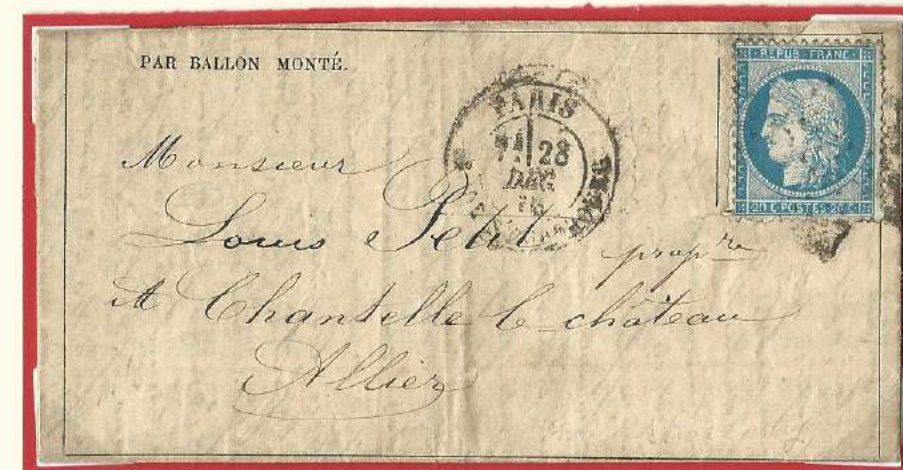 PAR BALLON MONTÉ.
REPUB. FRANC.
20 C. POSTES 20 C.
PARIS
28
DEC
70
Monsieur
Louis Petit propre
A Chantelle le château
Allier